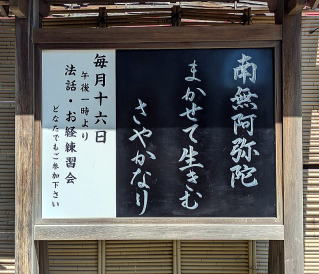 南無阿弥陀
まかせて生きむ
さやかなり
毎月十六日
午後一時より
法話・お経練習会
どなたでもご参加下さい